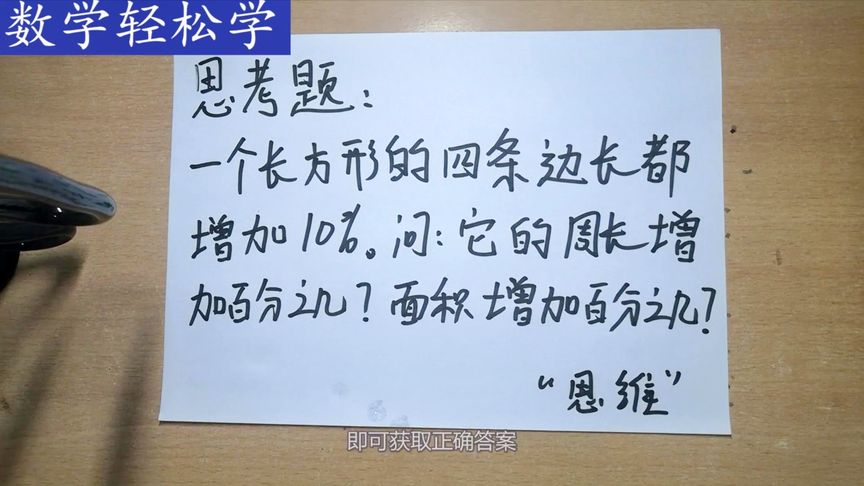 数学轻松学
思考题：
一个长方形的四条边长都
增加10%。问：它的周长增
加百分之几？面积增加百分之几？
“思维”
即可获取正确答案